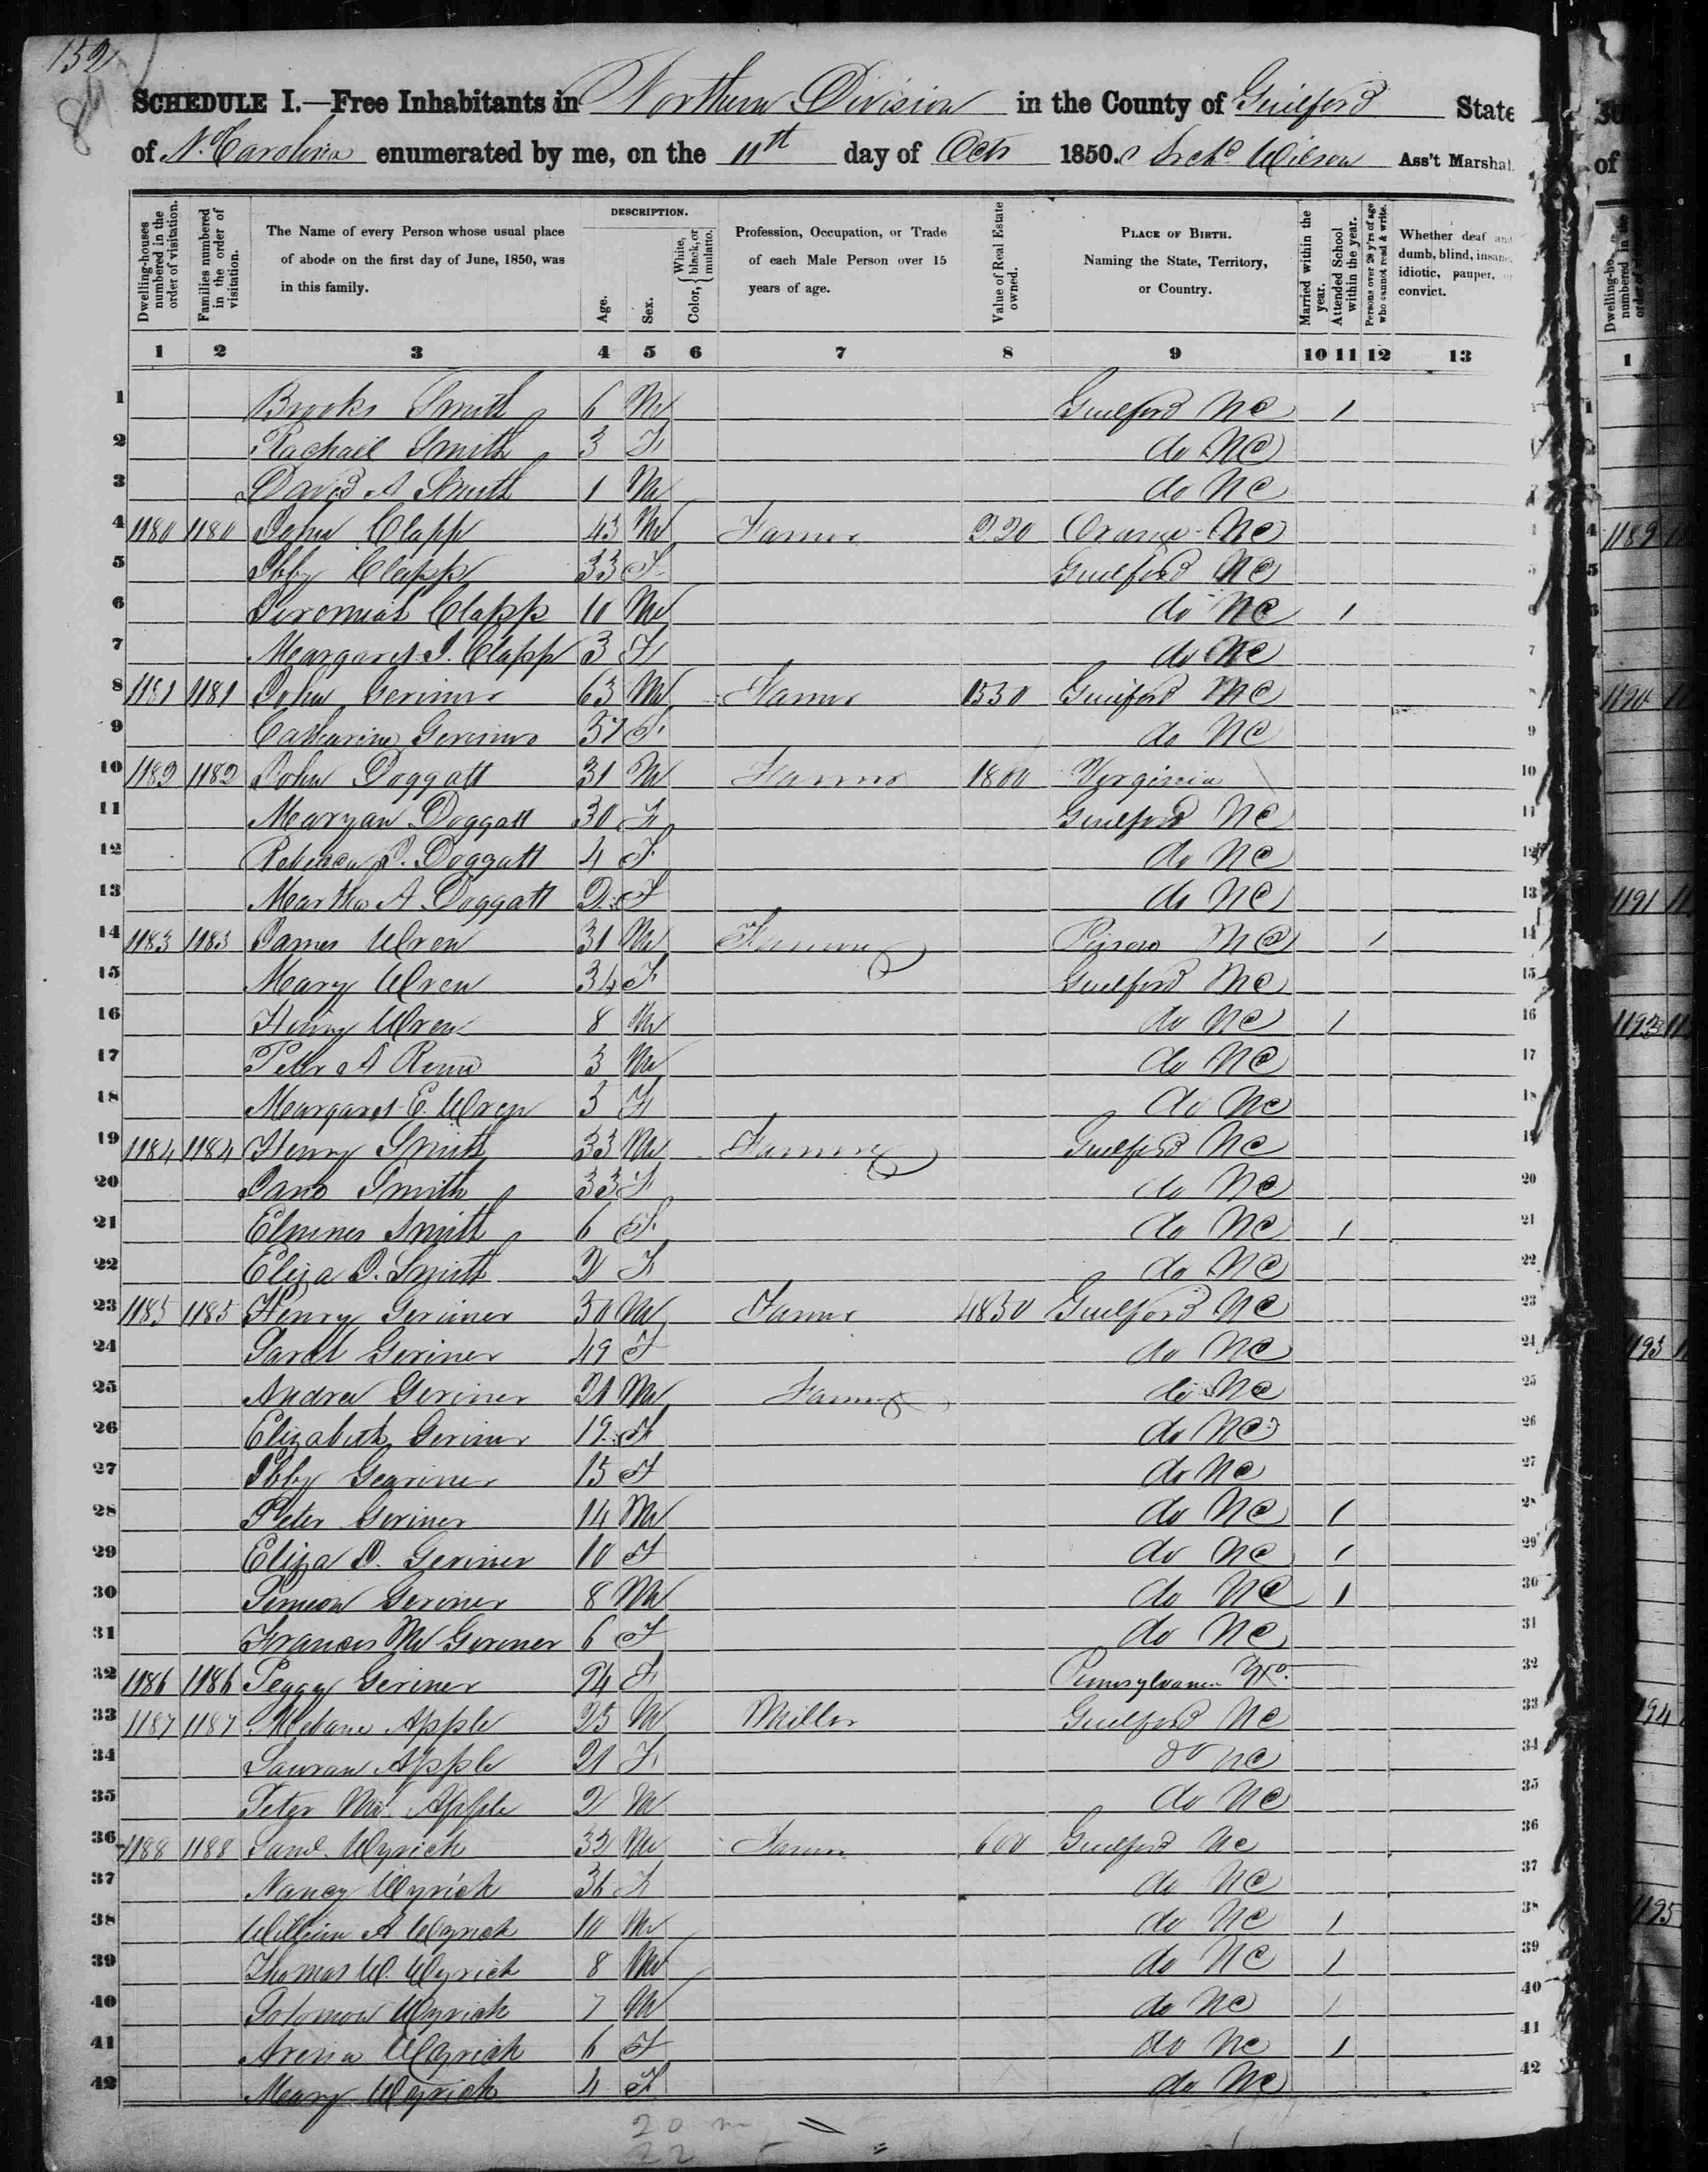 152
84
SCHEDULE I.—Free Inhabitants in Northern Division in the County of Guilford State
of N. Carolina enumerated by me, on the 11th day of Oct 1850. Archd Wilson Ass't Marshal.
Dwelling-houses numbered in the order of visitation.
Families numbered in the order of visitation.
The Name of every Person whose usual place of abode on the first day of June, 1850, was in this family.
DESCRIPTION.
Age.
Sex.
Color, { White, black, or mulatto.
Profession, Occupation, or Trade of each Male Person over 15 years of age.
Value of Real Estate owned.
PLACE OF BIRTH. Naming the State, Territory, or Country.
Married within the year.
Attended School within the year.
Persons over 20 y'rs of age who cannot read & write.
Whether deaf and dumb, blind, insane, idiotic, pauper, or convict.
1 2 3 4 5 6 7 8 9 10 11 12 13
1 Brooks Smith 6 M Guilford NC / 1
2 Rachael Smith 3 F do NC 2
3 David A Smith 1 M do NC 3
4 1180 1180 John Clapp 43 M Farmer 220 Orange NC 4
5 Ibby Clapp 33 F Guilford NC 5
6 Jeremiah Clapp 10 M do NC / 6
7 Margaret I. Clapp 3 F do NC 7
8 1181 1181 John Geriner 63 M Farmer 1530 Guilford NC 8
9 Catharine Geriner 37 F do NC 9
10 1182 1182 John Doggatt 31 M Farmer 1800 Virginia 10
11 Maryan Doggatt 30 F Guilford NC 11
12 Rebecca D. Doggatt 4 F do NC 12
13 Martha A Doggatt 2 F do NC 13
14 1183 1183 James Wren 31 M Farmer NC / 14
15 Mary Wren 34 F Guilford NC 15
16 Henry Wren 8 M do NC / 16
17 Peter A 3 M do NC 17
18 Margaret E. Wren 3 F do NC 18
19 1184 1184 Henry Smith 33 M Farmer Guilford NC 19
20 Jane Smith 33 F do NC 20
21 Smith 6 F do NC / 21
22 Eliza D. Smith 2 F do NC 22
23 1185 1185 Henry Geriner 50 M Farmer 4850 Guilford NC 23
24 Sarah Geriner 49 F do NC 24
25 Andrew Geriner 21 M Farmer do NC 25
26 Elizabeth Geriner 19 F do NC 26
27 Ibby Geariner 15 F do NC 27
28 Peter Geriner 14 M do NC / 28
29 Eliza D. Geriner 10 F do NC / 29
30 Simeon Geriner 8 M do NC / 30
31 Frances M Geriner 6 F do NC 31
32 1186 1186 Peggy Geriner 94 F Pennsylvania 32
33 1187 1187 Mebane Apple 25 M Miller Guilford NC 33
34 Apple 21 F do NC 34
35 Peter M. Apple 2 M do NC 35
36 1188 1188 Saml. Wyrick 32 M Farmer 600 Guilford NC 36
37 Nancy Wyrick 36 F do NC 37
38 William A Wyrick 10 M do NC / 38
39 Thomas W. Wyrick 8 M do NC / 39
40 Solomon Wyrick 7 M do NC / 40
41 Wyrick 6 F do NC / 41
42 Mary Wyrick 4 F do NC 42
20 m
22
of
1
1189
1190
1191
1193
1194
1195